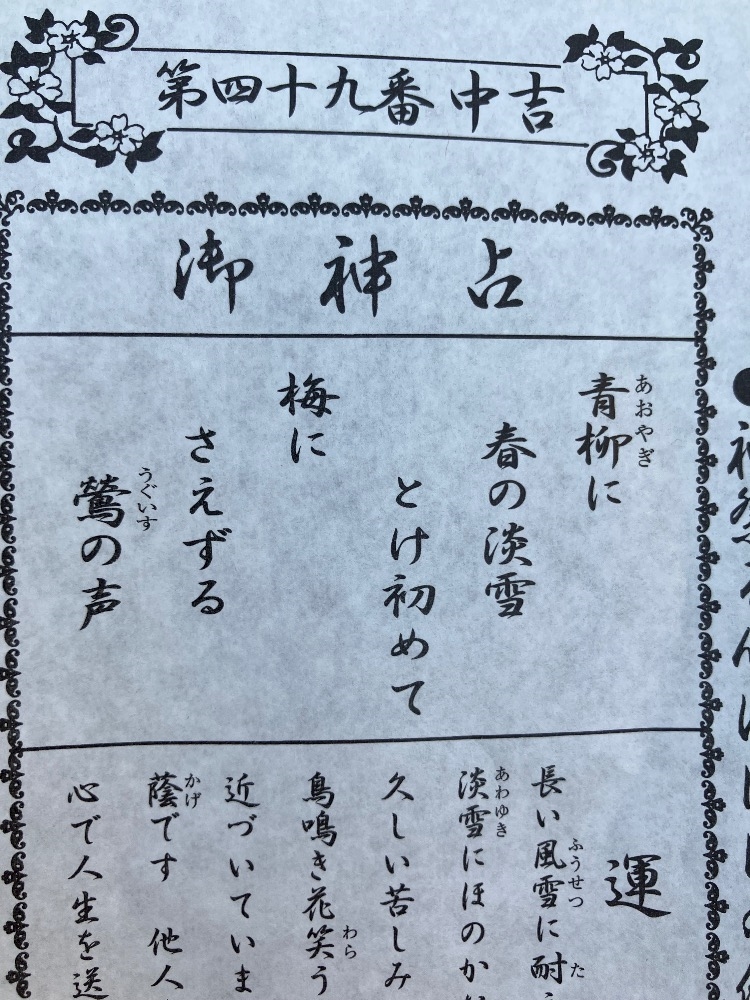 第四十九番 中吉
御神占
青柳に
あおやぎ
春の淡雪
とけ初めて
梅に
さえずる
鶯の声
うぐいす
運
長い風雪に耐
ふうせつ
た
淡雪にほのか
あわゆき
久しい苦しみ
鳥鳴き花笑う
わら
近づいていま
蔭です 他人
かげ
心で人生を送